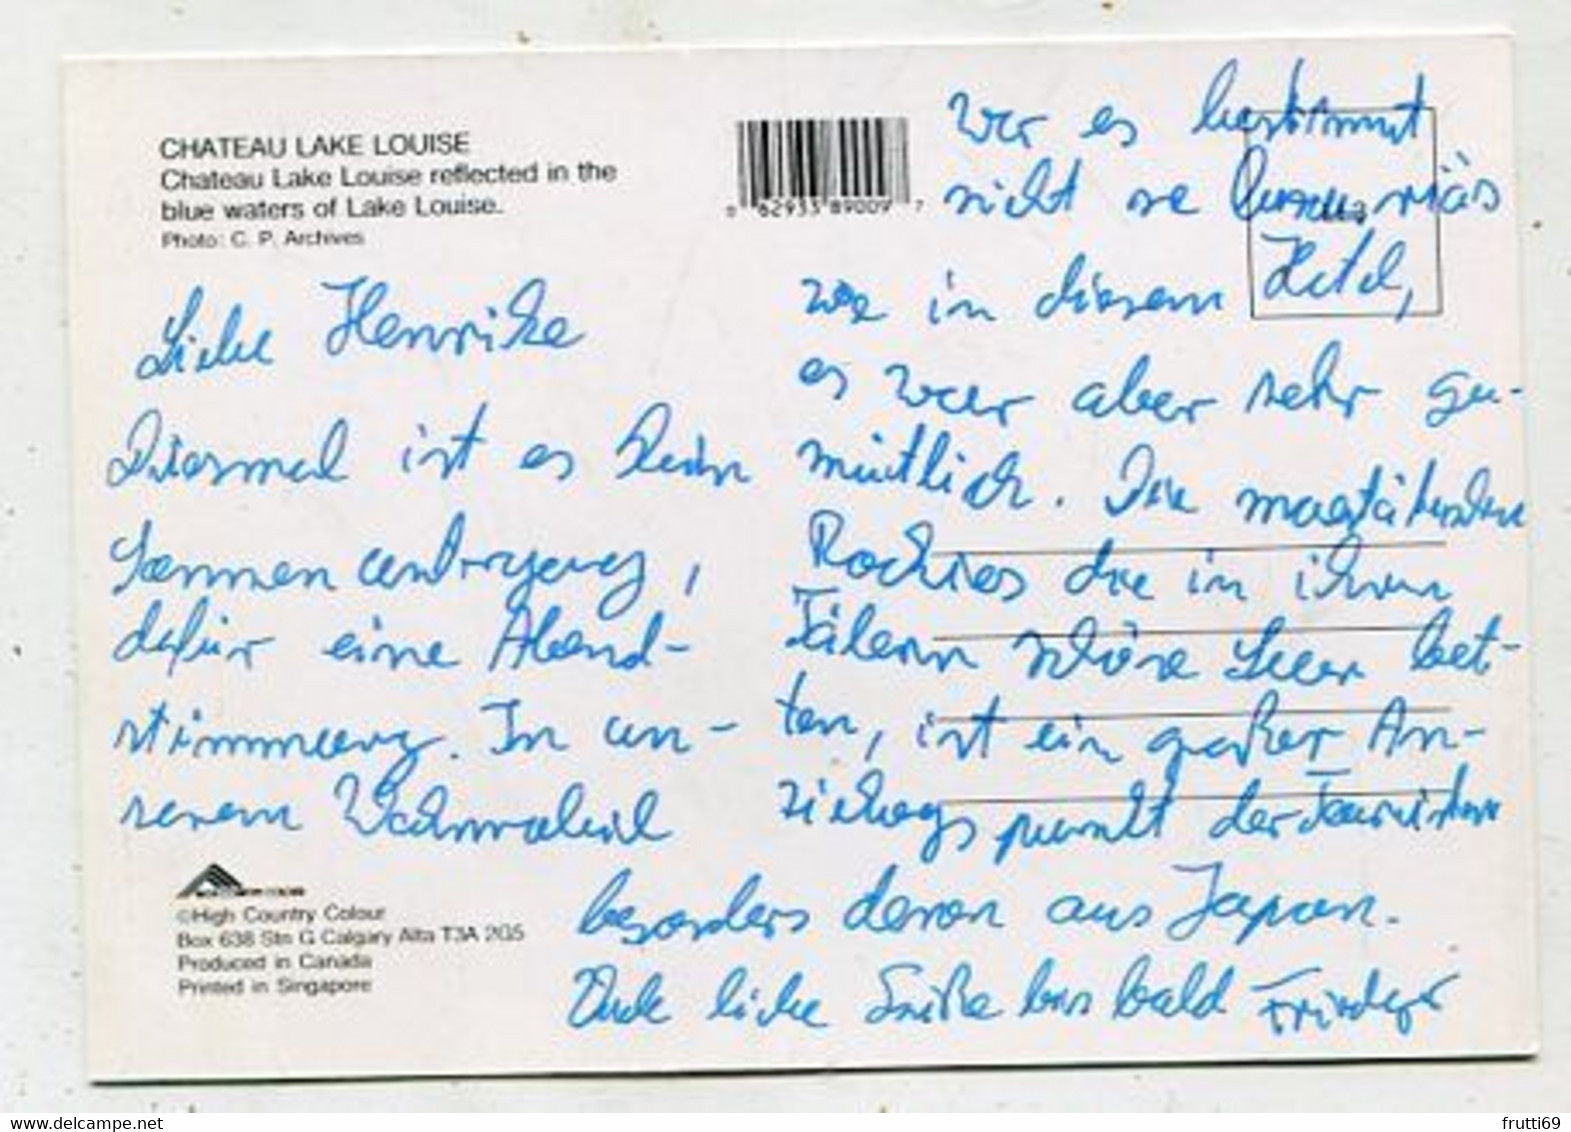 CHATEAU LAKE LOUISE
Chateau Lake Louise reflected in the
blue waters of Lake Louise.
Photo: C. P. Archives
0 62933 89009 7
Liebe Henrike
Diesmal ist es kein
Sonnenuntergang,
dafür eine Abend-
stimmung. In un-
serem Wohnmobil
war es bestimmt
nicht so luxuriös
wie in diesem Hotel,
es war aber sehr ge-
mütlich. Die majestätischen
Rockies die in ihren
Tälern schöne Seen bet-
ten, ist ein großer An-
ziehungspunkt der Touristen
besonders denen aus Japan.
Viele liebe Grüße bis bald Frieder
©High Country Colour
Box 638 Stn G Calgary Alta T3A 2G5
Produced in Canada
Printed in Singapore
frutti69
www.delcampe.net